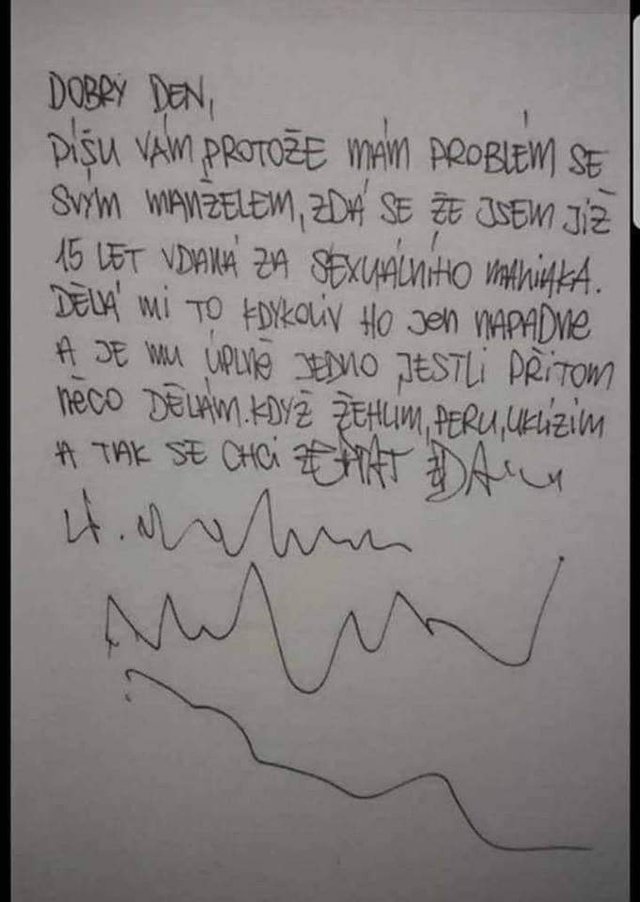 DOBRÝ DEN,
PÍŠU VÁM PROTOŽE MÁM PROBLÉM SE
SVÝM MANŽELEM, ZDÁ SE ŽE JSEM JIŽ
15 LET VDANÁ ZA SEXUÁLNÍHO MANIAKA.
DĚLÁ MI TO KDYKOLIV HO JEN NAPADNE
A JE MU ÚPLNĚ JEDNO JESTLI PŘITOM
NĚCO DĚLÁM. KDYŽ ŽEHLIM, PERU, UKLÍZIM
A TAK SE CHCI